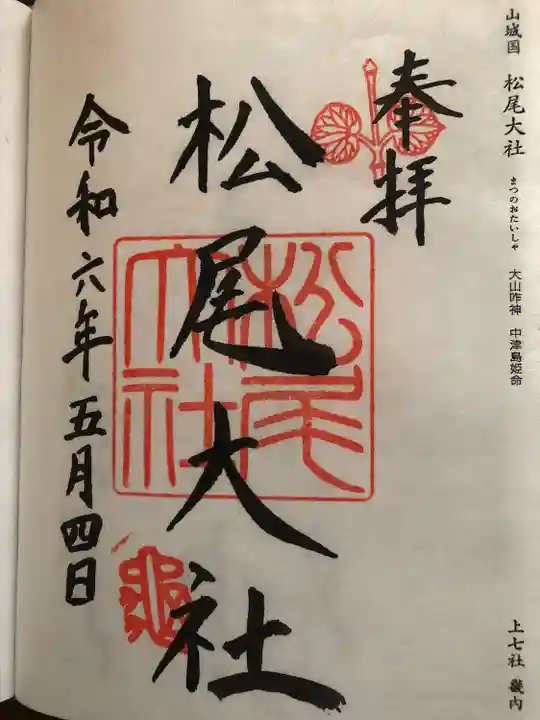 山城国 松尾大社 まつのおたいしゃ 大山咋神 中津島姫命
上七社 畿内
奉拝
松尾大社
令和六年五月四日
松尾大社